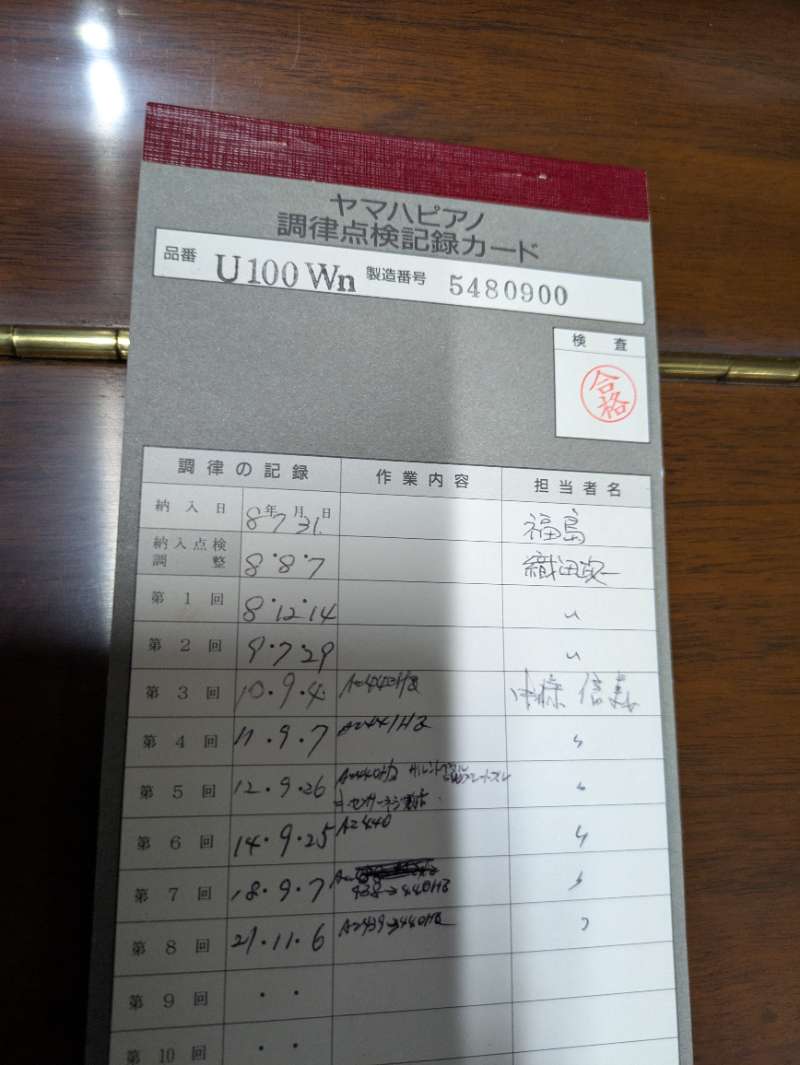 ヤマハピアノ
調律点検記録カード
品番 U100Wn 製造番号 5480900
検査
合格
調律の記録 作業内容 担当者名
納入日 8年7月31日 福島
納入点検調整 8・8・7
第1回 8・12・14 〃
第2回 9・7・29 〃
第3回 10・9・4 A=442HZ
第4回 11・9・7 A=441HZ 〃
第5回 12・9・26 A=440HZ 〃
第6回 14・9・25 A=440 〃
第7回 18・9・7 438→440HZ 〃
第8回 21・11・6 A=439→440HZ 〃
第9回 ・ ・
第10回 ・ ・